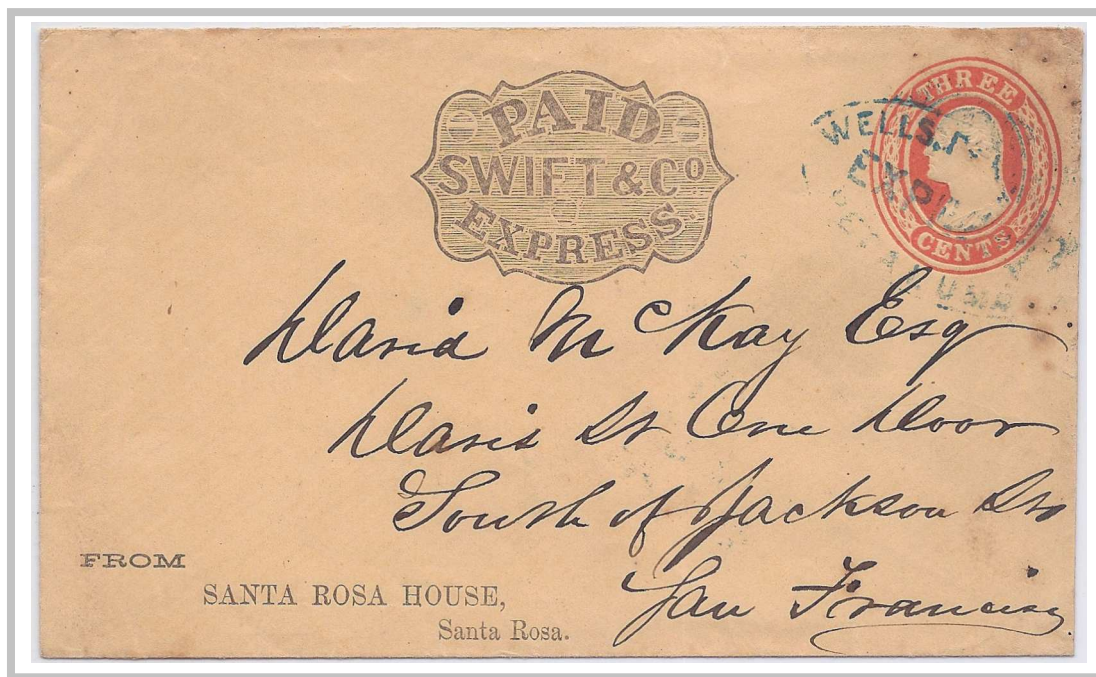 PAID
SWIFT & Co
EXPRESS.
THREE
CENTS
WELLS,
David McKay Esq
Davis St One Door
South of Jackson St
San Francisco
FROM
SANTA ROSA HOUSE,
Santa Rosa.